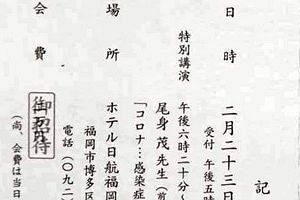 記
日時 二月二十三日
受付 午後五時
特別講演 午後六時二十分~
尾身茂先生(前
「コロナ…感染症
場所 ホテル日航福岡
福岡市博多区
電話(〇九二
会費 御招待
(尚、会費は当日